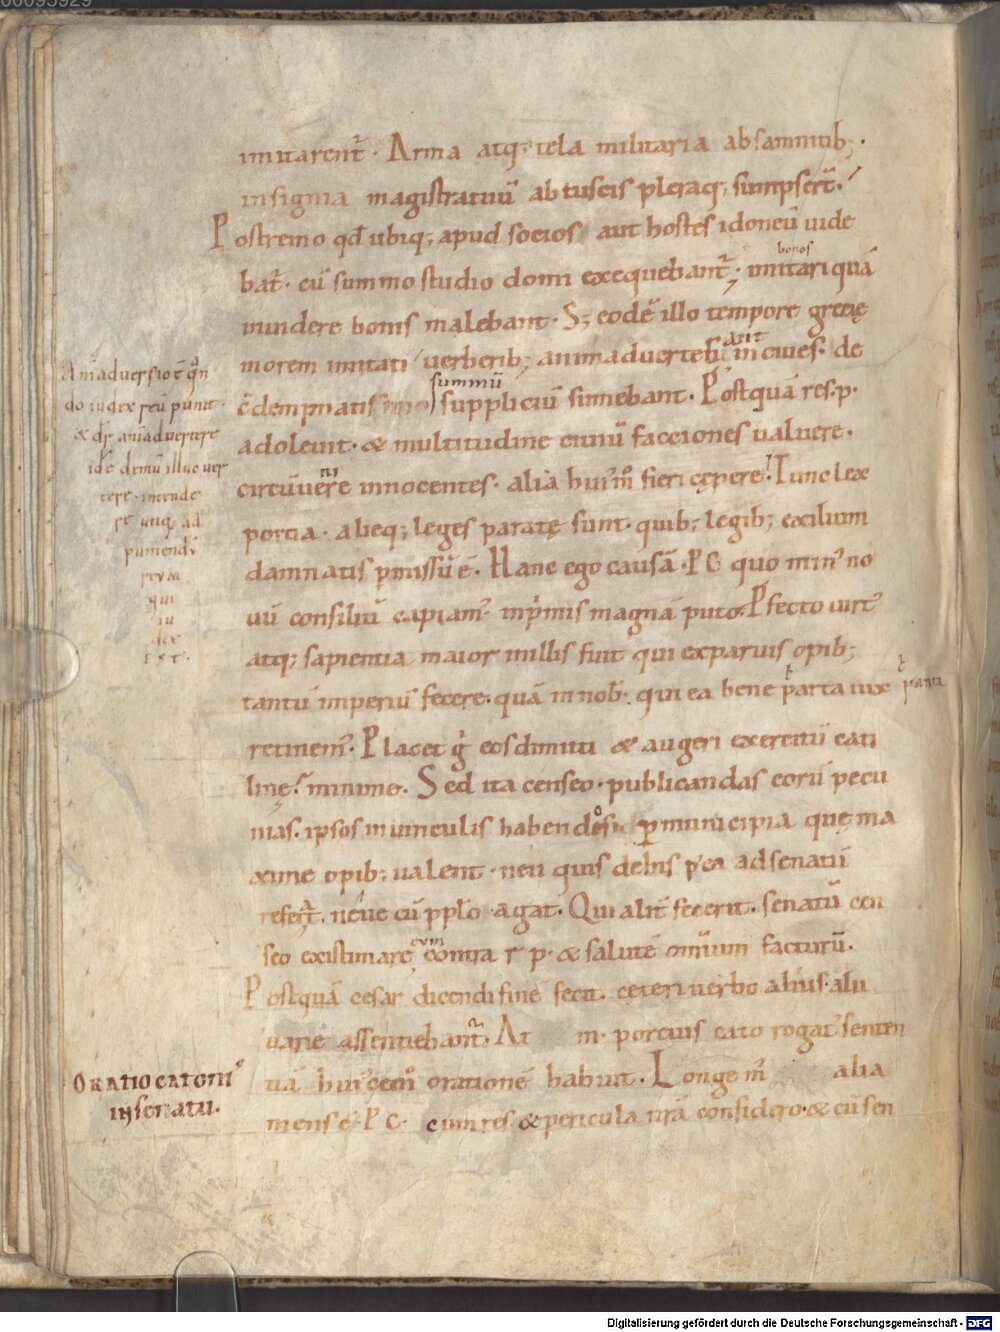 imitarent᷒. Arma atq; tela militaria absamnitib;.
insignia magistratuū abtuscis pleraq; sumpser̄t.
Postremo qd̄ ubiq; apud socios aut hostes idoneū uide
bat᷒. cū summo studio domi exequebant᷒; imitari quā
bonos
inuidere bonis malebant. S; eodē illo tempore grecię
morem imitati uerberib; animaduerteb in ciues. de
ant
cdempnatis suppliciū sumebant. Postquā res.p.
summū
adoleuit. & multitudine ciuiū facciones ualuere.
circūuenire innocentes. alia hui᷒m̊ fieri cępere. Tunc lex
porcia. alieq; leges paratę sunt. quib; legib; exilium
damnatis pmissū ē. Hanc ego causā .P C quo min᷒ no
uū consiliū capiam᷒. inpͥmis magnā puto. Pfecto uirt᷒
atq; sapientia maior inillis fuit qui exparuis opib;
tantū imperiū fecere. quā innob᷒. qui ea bene parta uix
parata
retinem᷒. Placet gͥ eosdimitti & augeri exercitū cati
linę? minime. Sed ita censeo. publicandas eorū pecu
nias. ipsos inuinculis habendos p municipia quęma
xime opib; ualent. neu quis dehis p᷒ea adsenatū
refert᷒. néue cū pplo agat. Qui alit᷒ fecerit. senatū cen
seo existimare eum contra r p. & salutē omniuum facturū.
Postquā cesar dicendi finē fecit. ceteri uerbo alius.alii
uarie assentiebant᷒. At m. porcius cato rogat᷒ senten
tiā hui᷒cem̊ orationē habuit. Longe m̊ alia
mens ē .P C. cum res & pericula nr̄a considero. & cū sen
Animaduersio ē qn̄
do iudex reū punit.
& dr̄ animaduertere
idē demū illuc uer
tere. intende
re utiq; ad
puniendū
reum
qui
iu
dex
est.
ORATIO CATONI᷒
in senatu.